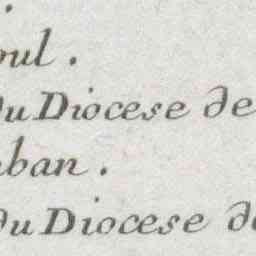 oul.
du Diocese de
ban.
du Diocese de